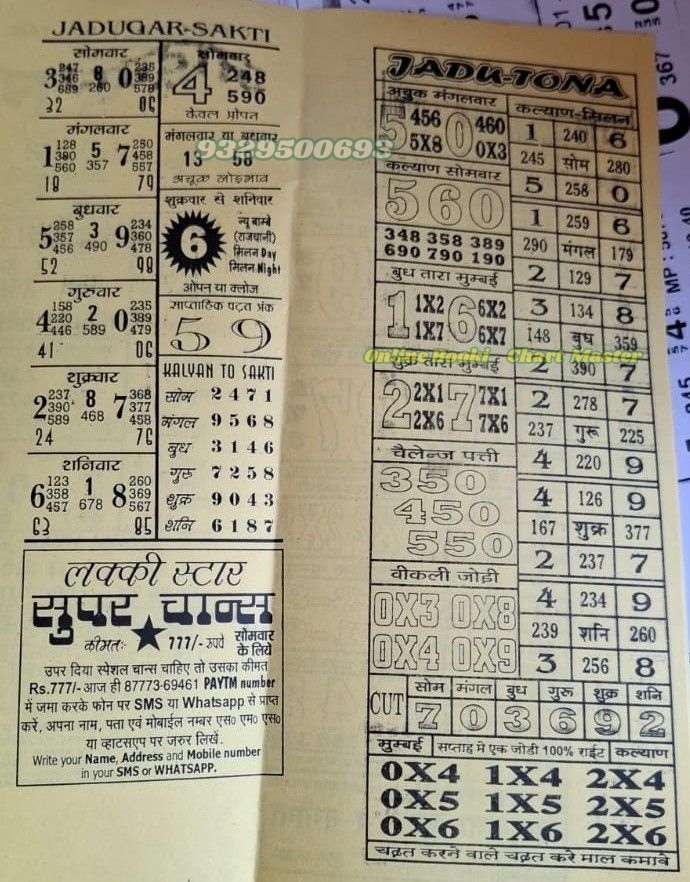 JADUGAR-SAKTI
सोमवार
3 247 346 689 8 260 0 235 389 578
32 06
मंगलवार
1 128 380 560 5 357 7 250 458 557
18 79
बुधवार
5 258 357 456 3 490 9 234 360 478
52 98
गुरुवार
4 158 220 446 2 589 0 235 389 479
41 06
शुक्रवार
2 237 390 589 8 468 7 368 377 458
24 76
शनिवार
6 123 358 457 1 678 8 260 369 567
63 85
सोमवार
4 248
590
केवल ओपन
मंगलवार या बुधवार
13 58
अचूक जोड़भाव
शुक्रवार से शनिवार
6
न्यू बाम्बे
(राजधानी)
मिलन Day
मिलन Night
ओपन या क्लोज
साप्ताहिक चढ़त अंक
5 9
KALYAN TO SAKTI
सोम 2 4 7 1
मंगल 9 5 6 8
बुध 3 1 4 6
गुरु 7 2 5 8
शुक्र 9 0 4 3
शनि 6 1 8 7
लक्की स्टार
सुपर चान्स
कीमतः 777/- रुपये सोमवार के लिये
उपर दिया स्पेशल चान्स चाहिए तो उसका कीमत
Rs.777/- आज ही 87773-69461 PAYTM number
में जमा करके फोन पर SMS या Whatsapp से प्राप्त
करें, अपना नाम, पता एवं मोबाईल नम्बर एस० एम० एस०
या व्हाटसएप पर जरुर लिखें.
Write your Name, Address and Mobile number
in your SMS or WHATSAPP.
JADU-TONA
अचूक मंगलवार
5 456 0 460
5X8 0X3
कल्याण सोमवार
560
348 358 389
690 790 190
बुध तारा मुम्बई
1 1X2 6 6X2
1X7 6X7
शुक्र तारा मुम्बई
2 2X1 7 7X1
2X6 7X6
चैलेन्ज पत्ती
350
450
550
वीकली जोड़ी
0X3 0X8
0X4 0X9
कल्याण-मिलन
1 240 6
245 सोम 280
5 258 0
1 259 6
290 मंगल 179
2 129 7
3 134 8
148 बुध 359
2 390 7
2 278 7
237 गुरू 225
4 220 9
4 126 9
167 शुक्र 377
2 237 7
4 234 9
239 शनि 260
3 256 8
CUT
सोम मंगल बुध गुरू शुक्र शनि
7 0 3 6 9 2
मुम्बई सप्ताह मे एक जोडी 100% राईट कल्याण
0X4 1X4 2X4
0X5 1X5 2X5
0X6 1X6 2X6
चढ़त करने वाले चढ़त करे माल कमावे
9329500693
Online Booki Chart Master
367